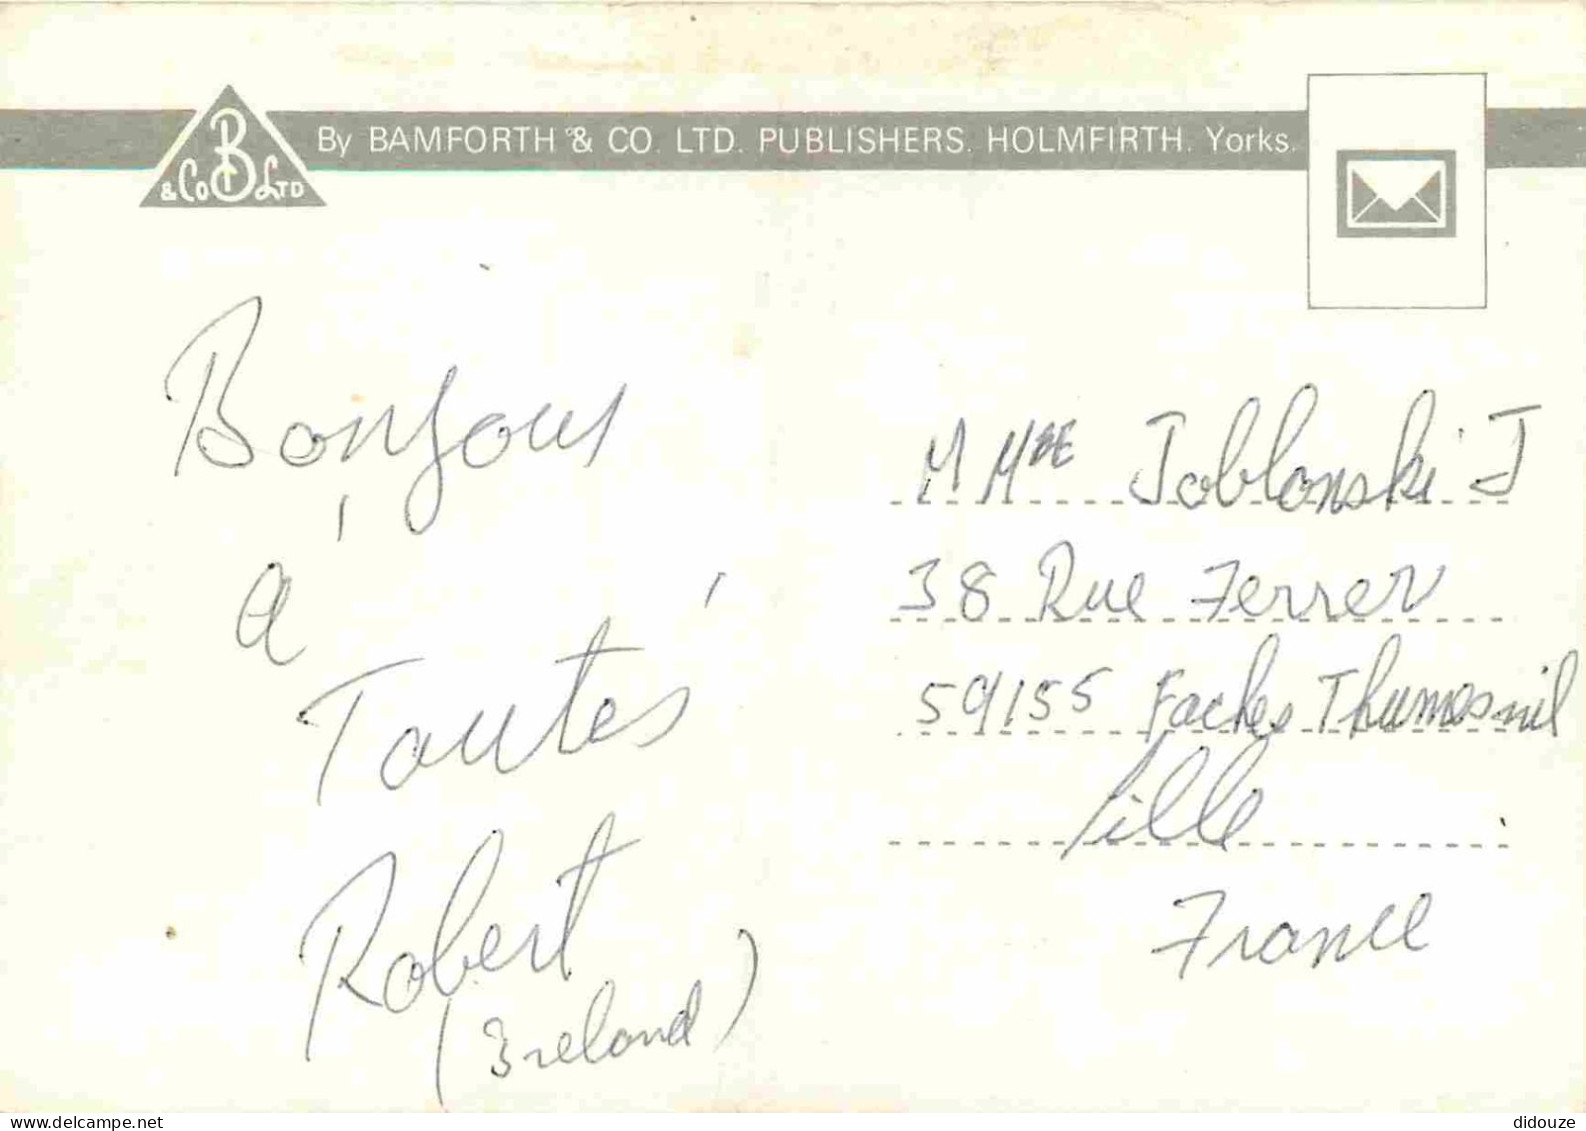 By BAMFORTH & CO. LTD. PUBLISHERS. HOLMFIRTH. Yorks.
B & Co LTD
Bonjour
à
Toutes
Robert
(Ireland)
M Mme Joblonski J
38 Rue Ferrer
59155 Faches Thumesnil
Lille
France
didouze